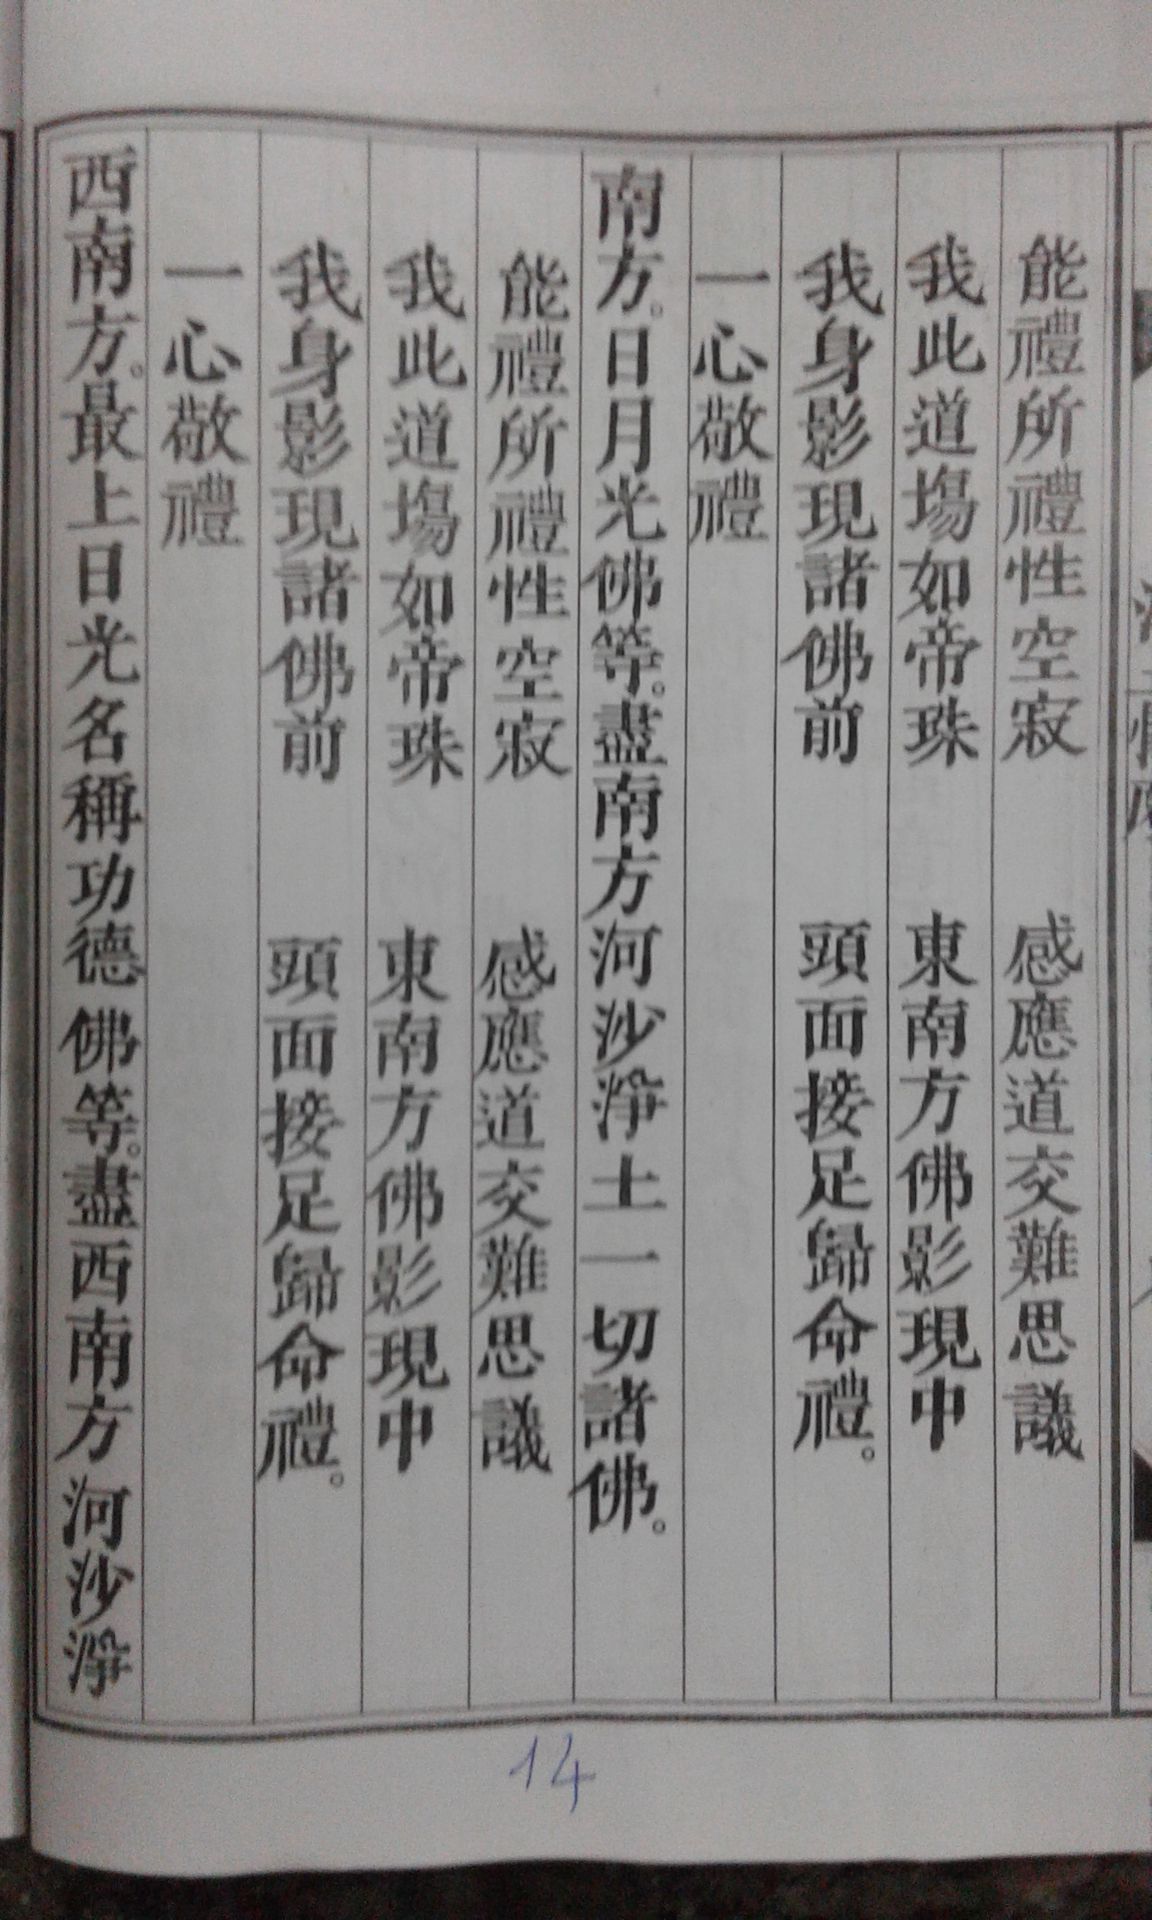 能禮所禮性空寂　感應道交難思議
我此道場如帝珠　東南方佛影現中
我身影現諸佛前　頭面接足歸命禮。
一心敬禮
南方。日月光佛等。盡南方河沙淨土一切諸佛。
能禮所禮性空寂　感應道交難思議
我此道場如帝珠　東南方佛影現中
我身影現諸佛前　頭面接足歸命禮。
一心敬禮
西南方。最上日光名稱功德佛等。盡西南方河沙淨
14